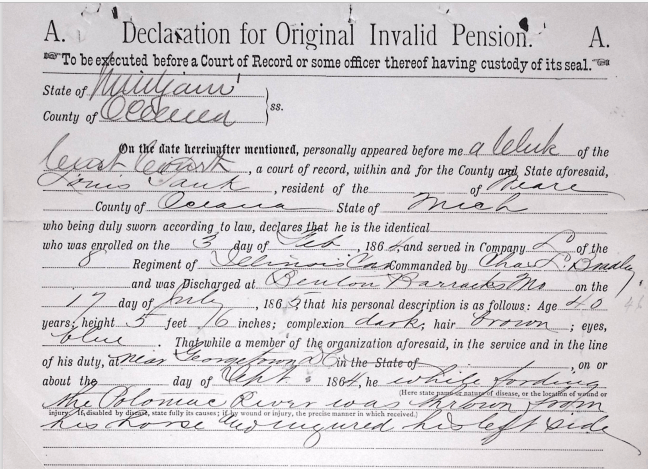 A. Declaration for Original Invalid Pension. A.
To be executed before a Court of Record or some officer thereof having custody of its seal.
State of Michigan
County of Oceana } ss.
On the date hereinafter mentioned, personally appeared before me a Clerk of the
Court, a court of record, within and for the County and State aforesaid,
Louis, resident of the of
County of Oceana State of Mich
who being duly sworn according to law, declares that he is the identical
who was enrolled on the 3 day of Feb, 1864 and served in Company L of the
8 Regiment of Illinois Cav Commanded by Chas L.
and was Discharged at Benton Barracks Mo on the
17 day of July, 1865, that his personal description is as follows: Age 40
years; height 5 feet 6 inches; complexion dark; hair brown; eyes,
blue. That while a member of the organization aforesaid, in the service and in the line
of his duty, at near Georgetown DC in the State of, on or
about the day of Sept, 1864, he while fording
(Here state name or nature of disease, or the location of wound or
the Potomac River was thrown from
injury. If disabled by disease, state fully its causes; if by wound or injury, the precise manner in which received.)
his horse and injured his left side